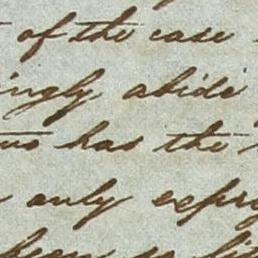 of the case
ingly abide
has the
only expre
been so